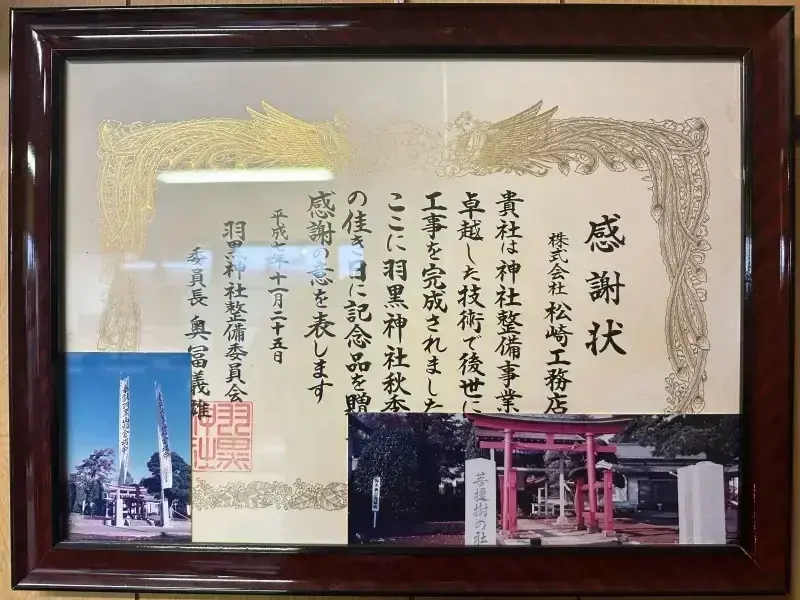 感謝状
株式会社 松崎工務店
貴社は神社整備事業
卓越した技術で後世に
工事を完成されました
ここに羽黒神社秋季
の佳き日に記念品を贈
感謝の意を表します
平成七年十一月二十五日
羽黒神社整備委員会
委員長 奥冨義雄
羽黒
菩提樹の社